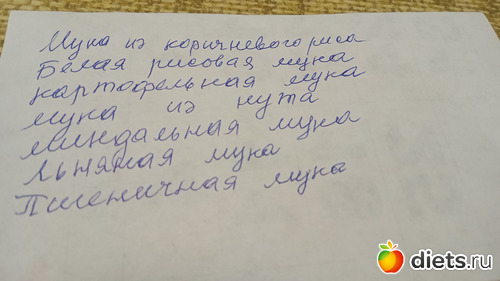 Мука из коричневого риса
Белая рисовая мука
картофельная мука
мука из нута
миндальная мука
льняная мука
Пшеничная мука
diets.ru